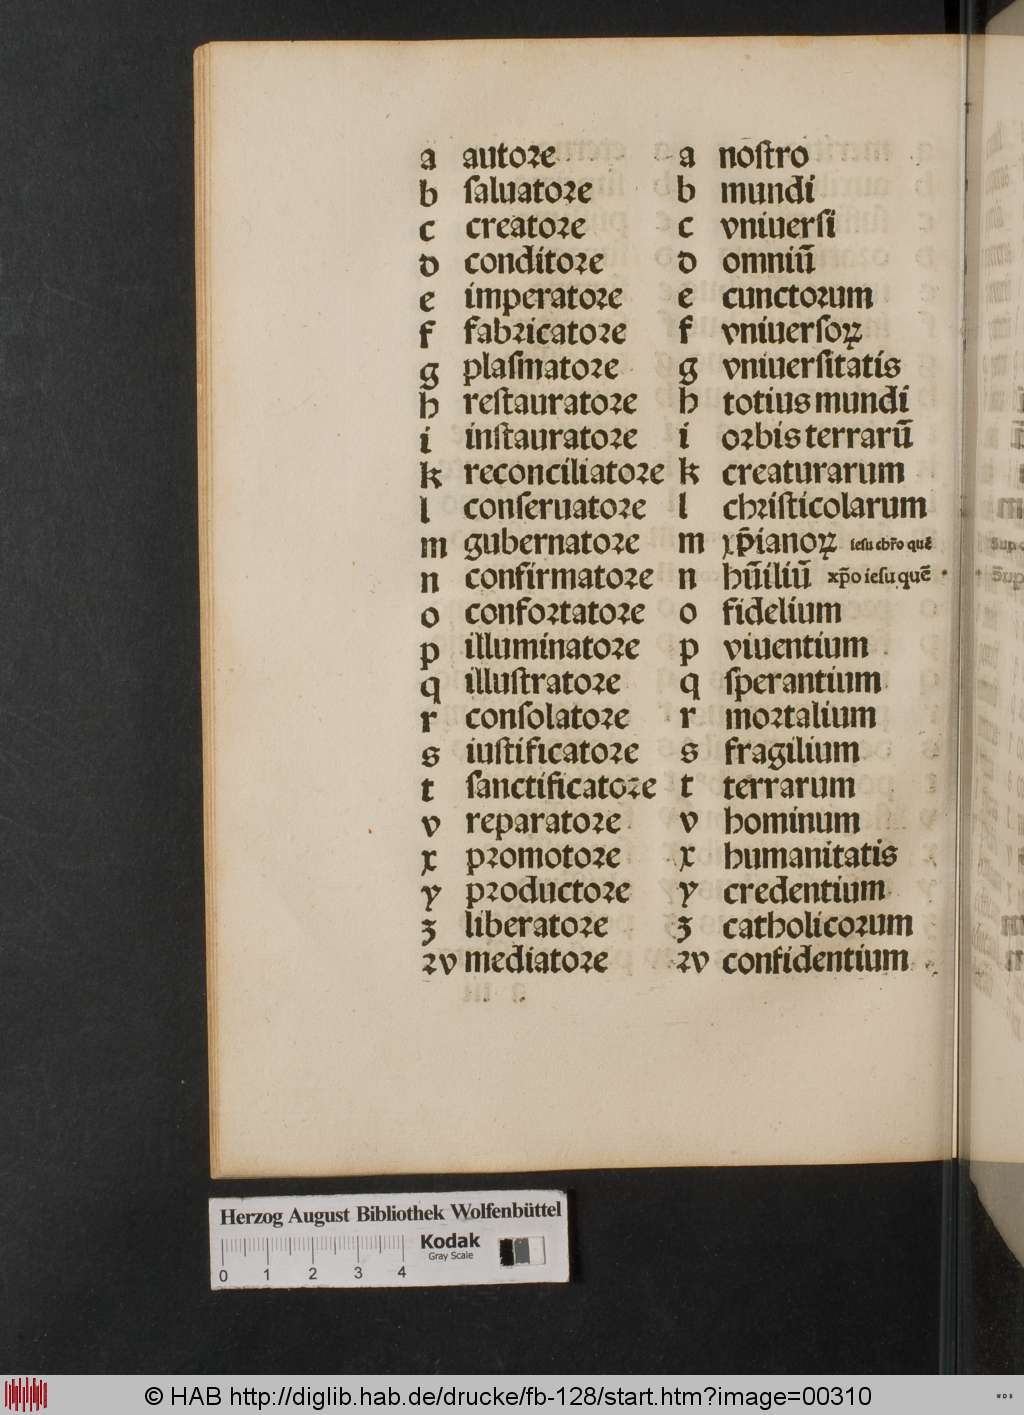 a autore a nostro
b saluatore b mundi
c creatore c vniuersi
d conditore d omniū
e imperatore e cunctorum
f fabricatore f vniuersoꝝ
g plasmatore g vniuersitatis
h restauratore h totius mundi
i instauratore i orbis terrarū
k reconciliatore k creaturarum
l conseruatore l christicolarum
m gubernatore m xp̄ianoꝝ iesu chr̄o quē
n confirmatore n hūiliū xp̄o iesu quē
o confortatore o fidelium
p illuminatore p viuentium
q illustratore q sperantium
r consolatore r mortalium
s iustificatore s fragilium
t sanctificatore t terrarum
v reparatore v hominum
x promotore x humanitatis
y productore y credentium
ʒ liberatore ʒ catholicorum
ꝛv mediatore ꝛv confidentium
Herzog August Bibliothek Wolfenbüttel
Kodak
Gray Scale
0 1 2 3 4
© HAB http://diglib.hab.de/drucke/fb-128/start.htm?image=00310